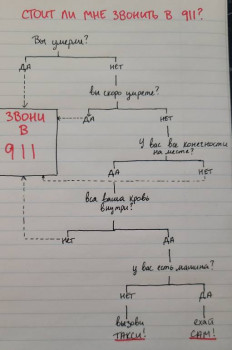 СТОИТ ЛИ МНЕ ЗВОНИТЬ В 911?
Вы умерли?
ДА
НЕТ
вы скоро умрете?
ЗВОНИ
В
911
ДА
НЕТ
У вас все конечности
на месте?
ДА
НЕТ
вся ваша кровь
внутри?
НЕТ
ДА
у вас есть машина?
НЕТ
ДА
вызови
ТАКСИ!
ехай
САМ!